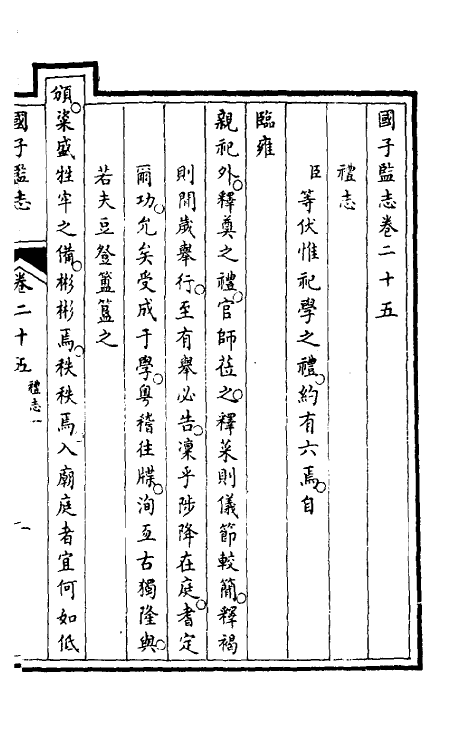 國子監志卷二十五
禮志
臣等伏惟祀學之禮約有六焉自
臨雍
親祀外釋奠之禮官師莅之釋菜則儀節較簡釋褐
則間歲舉行至有舉必告凜乎陟降在庭耆定
爾功允矣受成于學粵稽往牒洵亙古獨隆與
若夫豆豋簠簋之
頒粢盛牲牢之備彬彬焉秩秩焉入廟庭者宜何如低
國子監志
卷二十五
禮志一
一